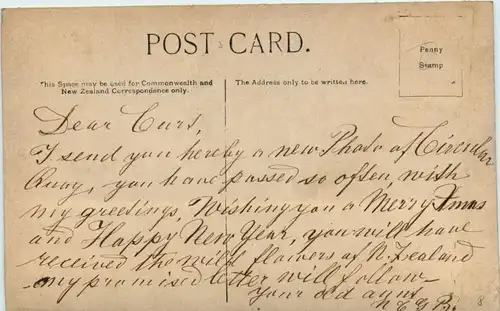 POST CARD.
Penny
Stamp
This Space may be used for Commonwealth and
New Zealand Correspondence only.
The Address only to be written here.
Dear Curs,
I send you hereby a new Photo of Circular
Quay, you have passed so often with
my greetings, Wishing you a Merry Xmas
and Happy New Year, you will have
received the wild flowers of N. Zealand
my promised letter will follow
Your old
8